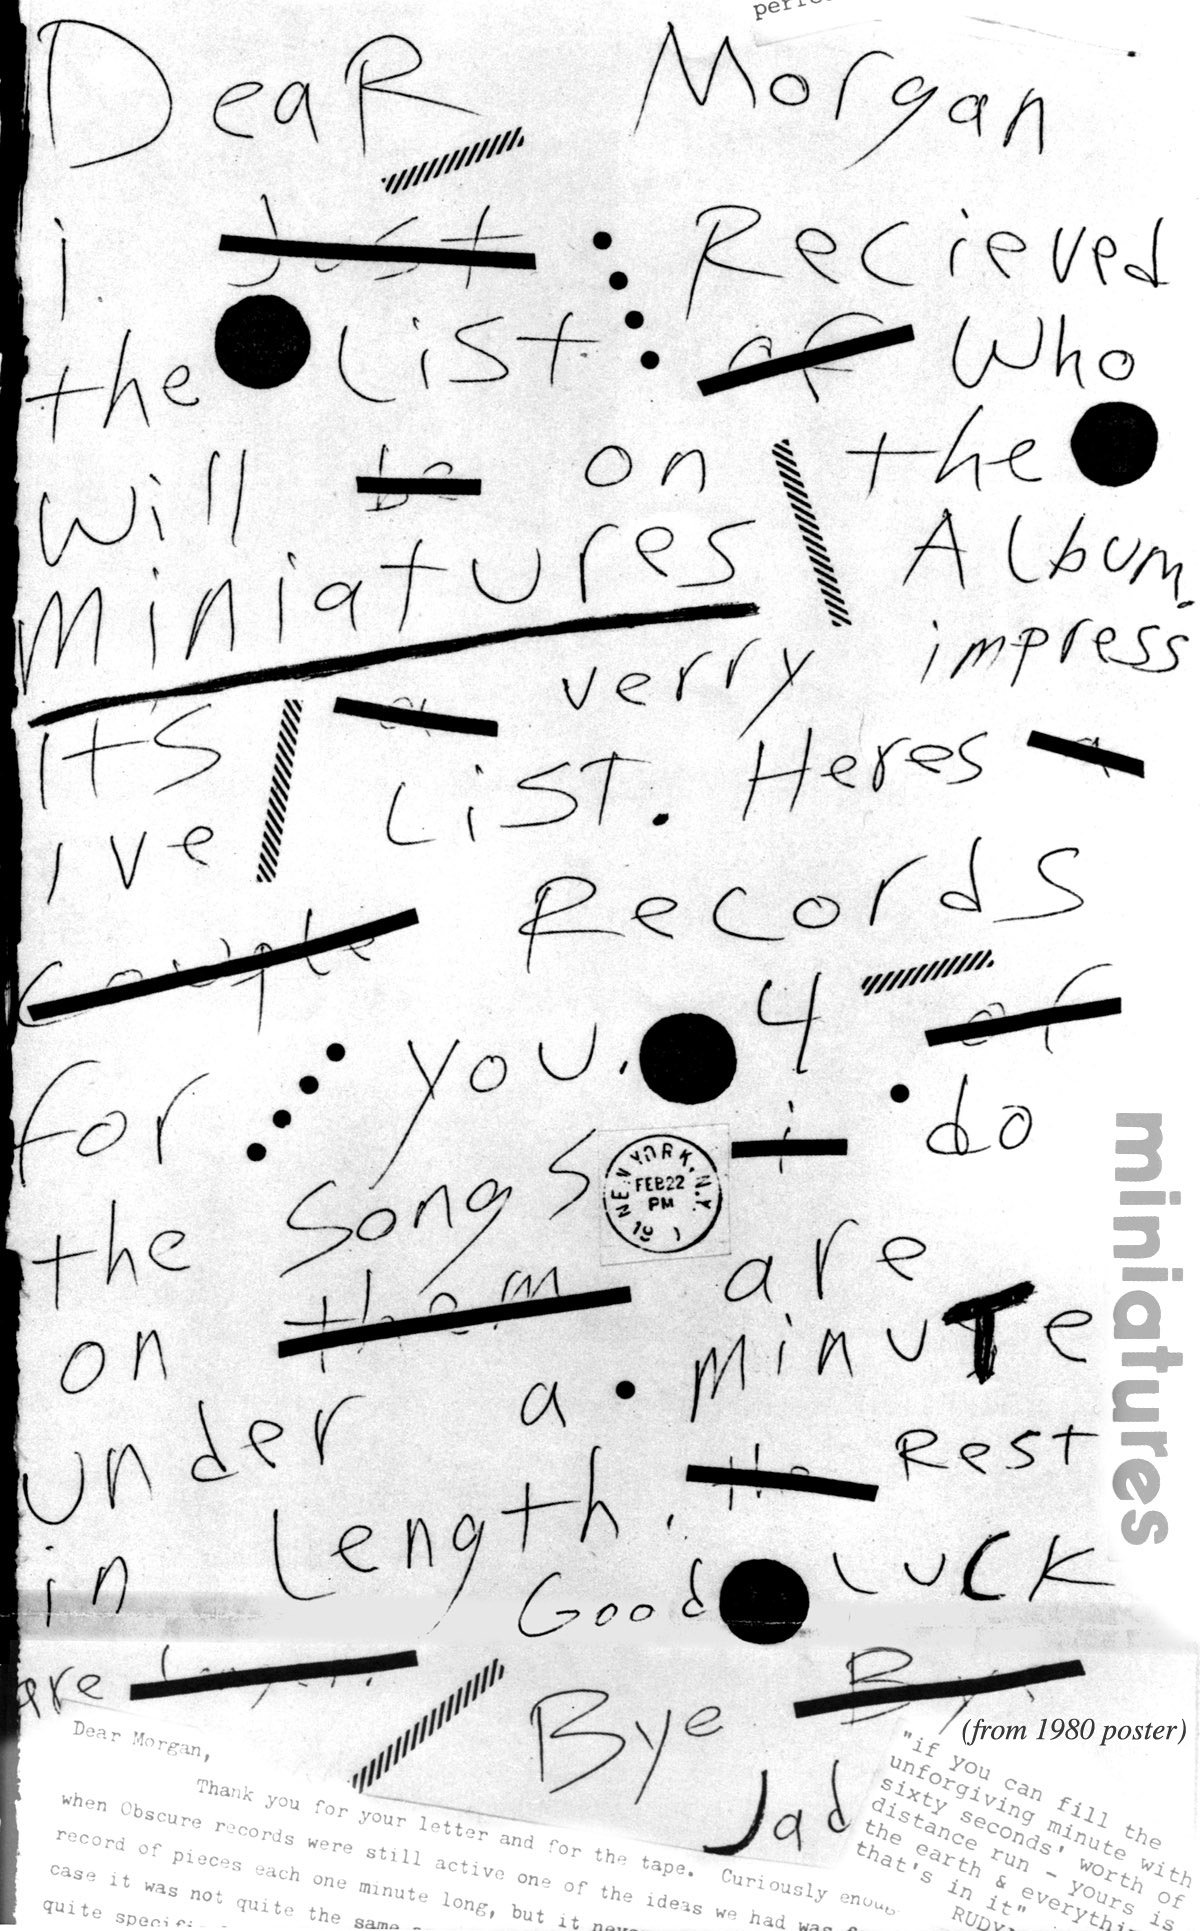 Dear Morgan
i Just Recieved
the List of Who
will be on the
miniatures Album.
it's a verry impress
ive List. Heres a
couple Records
for you. 4 of
the songs i do
on them are
under a minute
in Length. the Rest
are Good Luck
Bye Bye
Jad
NEW YORK, N.Y.
FEB 22
PM
19
miniatures
(from 1980 poster)
Dear Morgan,
Thank you for your letter and for the tape. Curiously
when Obscure records were still active one of the ideas we had was
record of pieces each one minute long, but it
case it was not quite the same
quite
"if you can fill the
unforgiving minute with
sixty seconds' worth of
distance run - yours is
the earth & everything
that's in it"